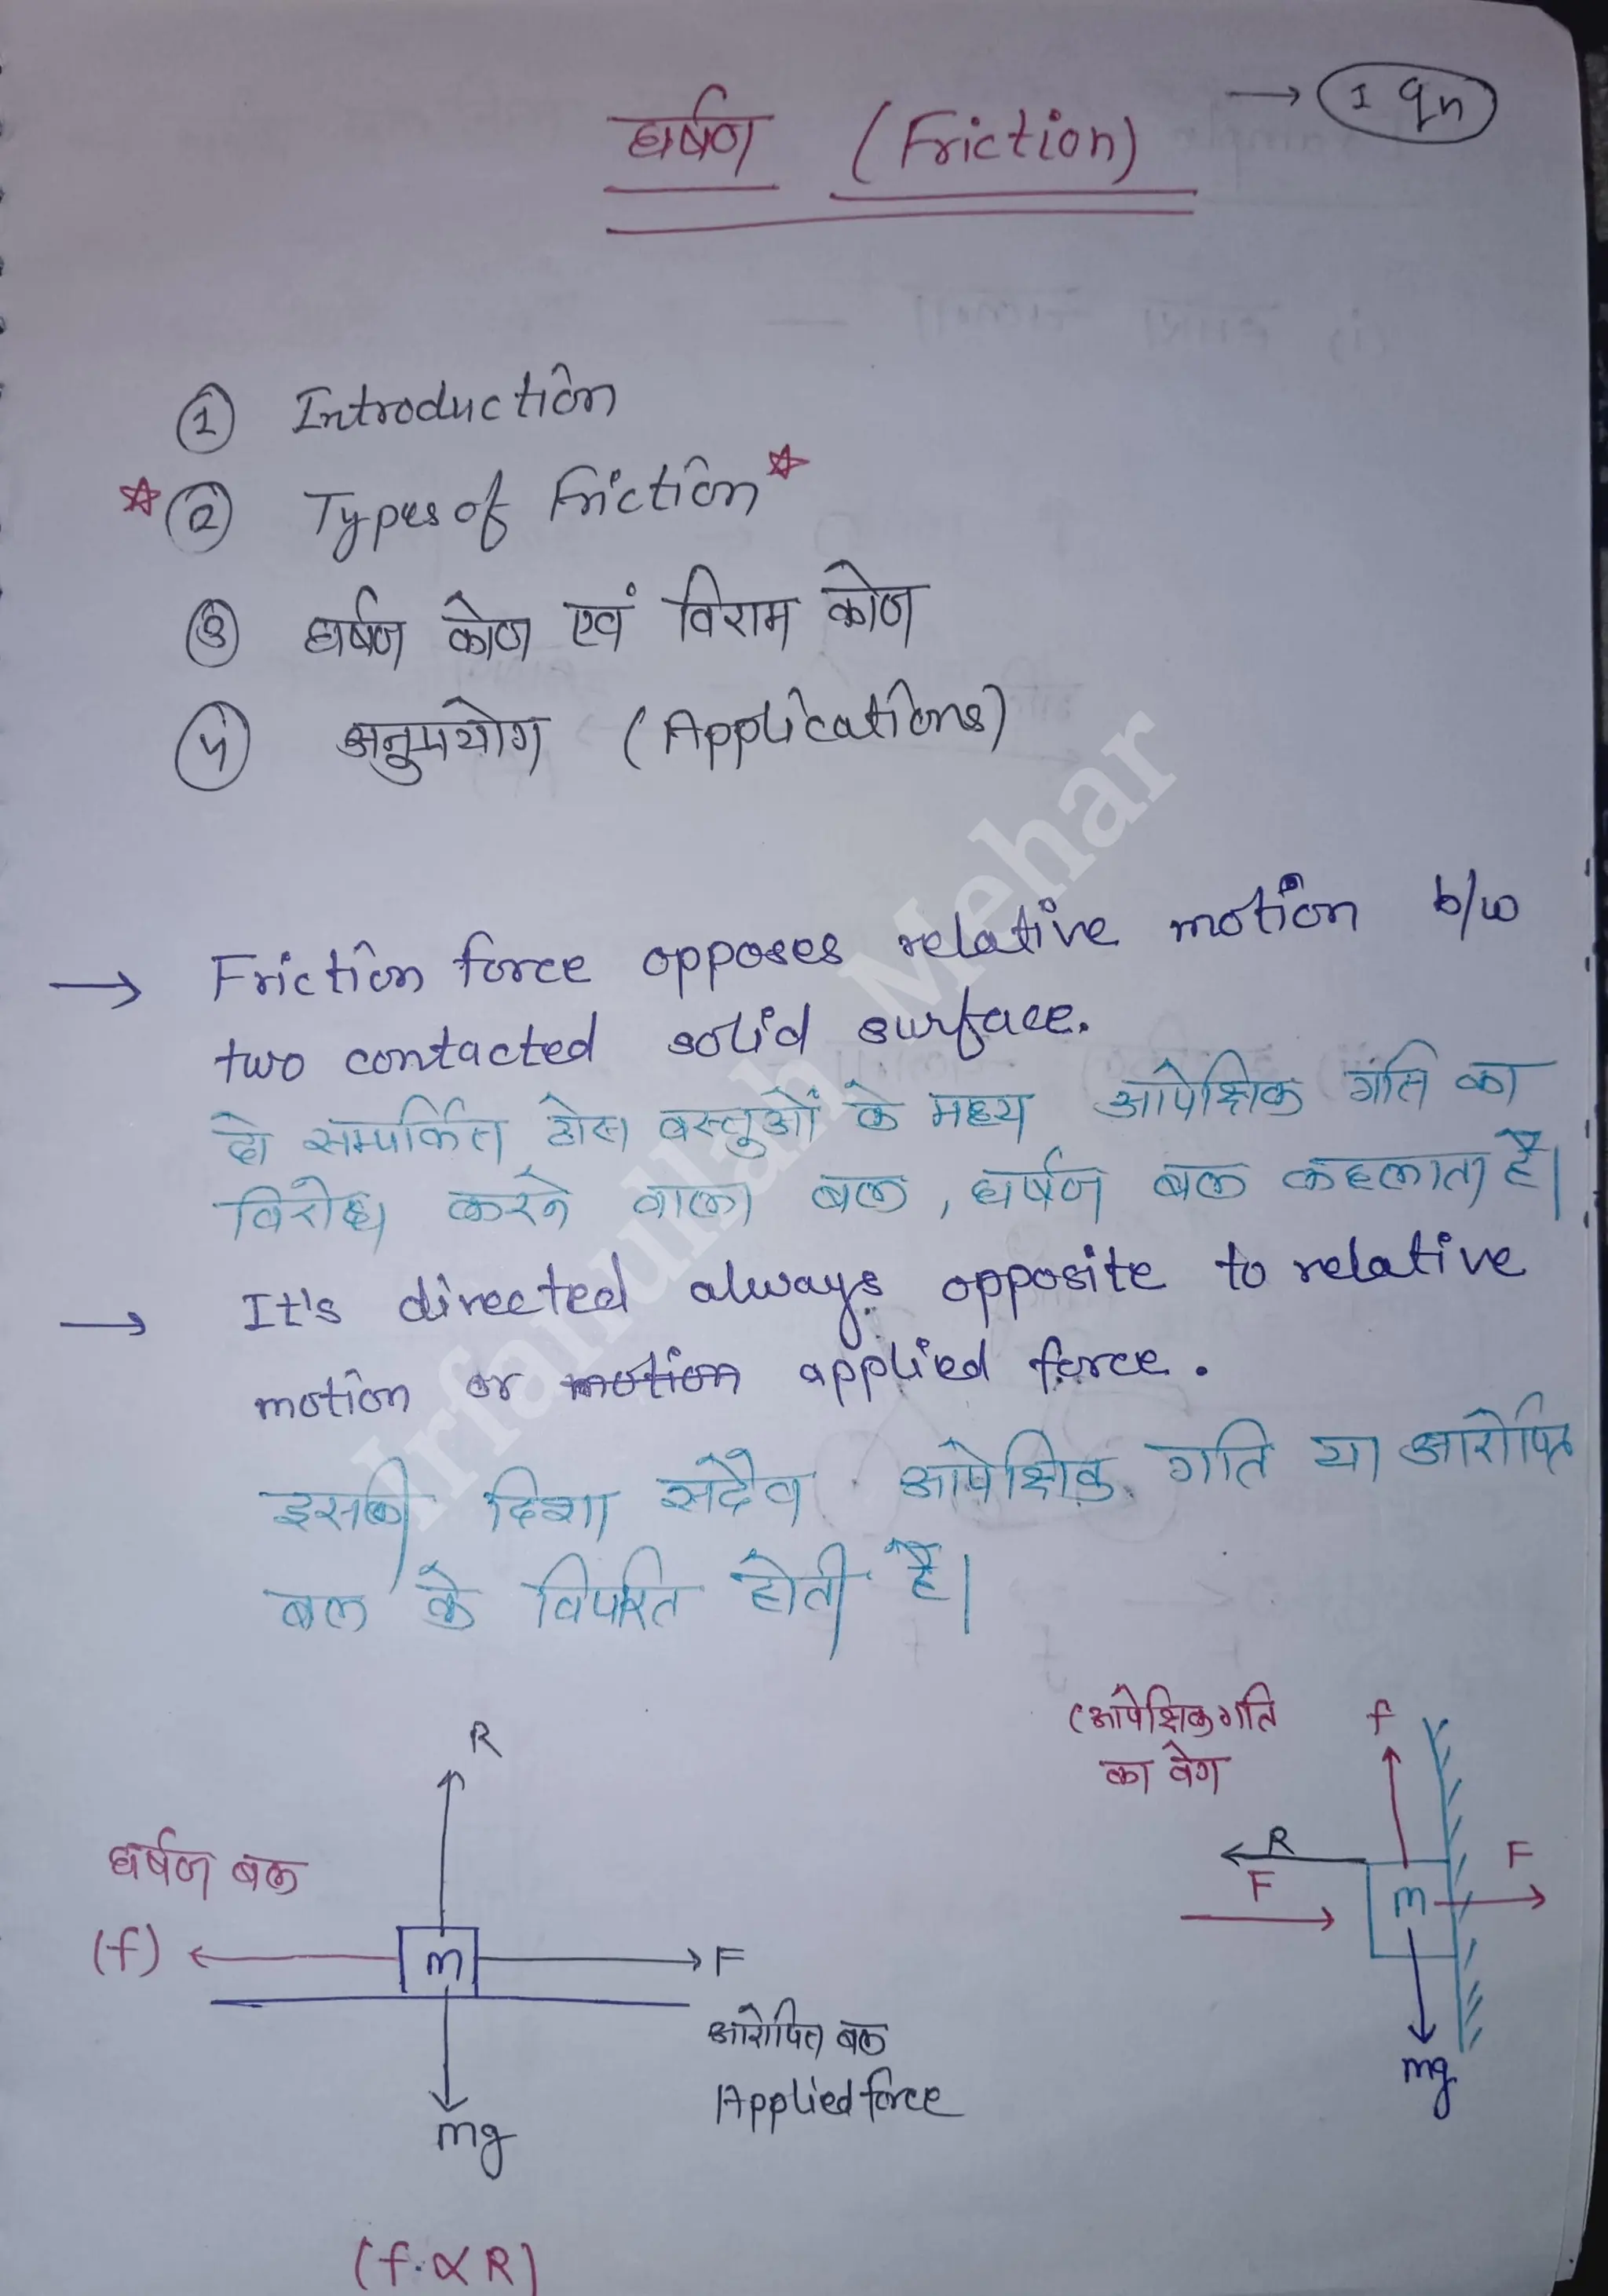 घर्षण (Friction) → 1 qn
① Introduction
② Types of Friction
③ घर्षण कोण एवं विराम कोण
④ अनुप्रयोग (Applications)
→ Friction force opposes relative motion b/w
two contacted solid surface.
दो सम्पर्कित ठोस वस्तुओं के मध्य आपेक्षिक गति का
विरोध करने वाला बल, घर्षण बल कहलाता है।
→ It's directed always opposite to relative
motion or motion applied force.
इसकी दिशा सदैव आपेक्षिक गति या आरोपित
बल के विपरित होती है।
R
घर्षण बल
(f)
m
F
आरोपित बल
Applied force
mg
(f ∝ R)
(आपेक्षिक गति
का वेग
f
R
F
m
F
mg
Irfanullah Mehar